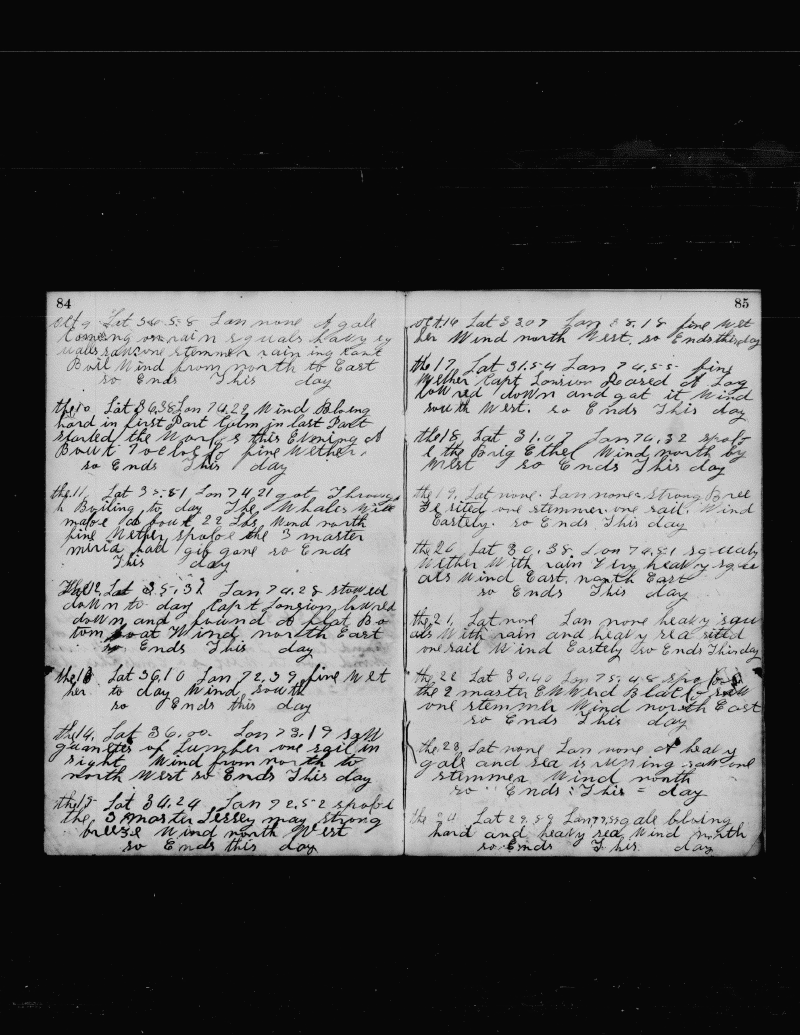 84
Oct 9 Lat 34.58 Lon none A gale
Comeing on rain squals heavy sq
ualls saw one stemmer rain ing hard
Wind from north to East
so Ends This day
the 10 Lat 36.38 Lon 74.22 Wind Bloing
hard in first Part Calm in last Part
started the Works this Evning A
Bout 7 oclock fine Wether.
so Ends This day
the 11, Lat 35.51 Lon 74.21 got Throug
h Boiling to day The Whales Will
make a bout 22 bbs Wind north
fine Wether spoke the 3 master
had gib gone so Ends
This day
The 12 Lat 35.32 Lon 74.28 stowed
doWn to day Capt Lonsion lowred
doWn and found A flat Bo
tom boat Wind north East
so Ends This day
the 13 Lat 36.10 Lon 72.39 fine Wet
her to day Wind south
so Ends this day
the 14. Lat 36.00. Lon 73.19 saW
quanetes of Lumber one sail in
sight. Wind from north to
north West so Ends This day
the 15 Lat 34.24 Lon 72.52 spoke
the 3 master Jessey may strong
breeze Wind north West
so Ends this day
85
oct. 16 Lat 33.07 Lon 38.18 fine Wet
her Wind north West. so Ends this day
the 17, Lat 31.54 Lon 74.55 fine
Wether Capt Lonsion A Log
loWred doWn and got it Wind
south West. so Ends This day
the 18, Lat. 31.07 Lon 74,32 spok
e the Brig Ethel Wind north by
West so Ends This day
the 19, Lat none. Lon none. Strong Bree
ze sited one stemmer one sail. Wind
Eastely. so Ends This day
the 20, Lat 30.38, Lon 74.41 squaly
Wether With rain Very heavy squ
als Wind East. north East
so Ends This day
the 21, Lat none Lon none heavy squ
als With rain and heavy sea sited
one sail Wind Eastely so Ends This day
the 22 Lat 30.40 Lon 75.48 spoke
the 2 master EWWerd Blake saw
one stemmer Wind north East
so Ends This day
the 23, Lat none Lon none A heavy
gale and sea is runing saw one
stemmer Wind north
so Ends This day
the 24 Lat 29.59 Lon gale bloing
hard and heavy sea Wind north
so Ends This day